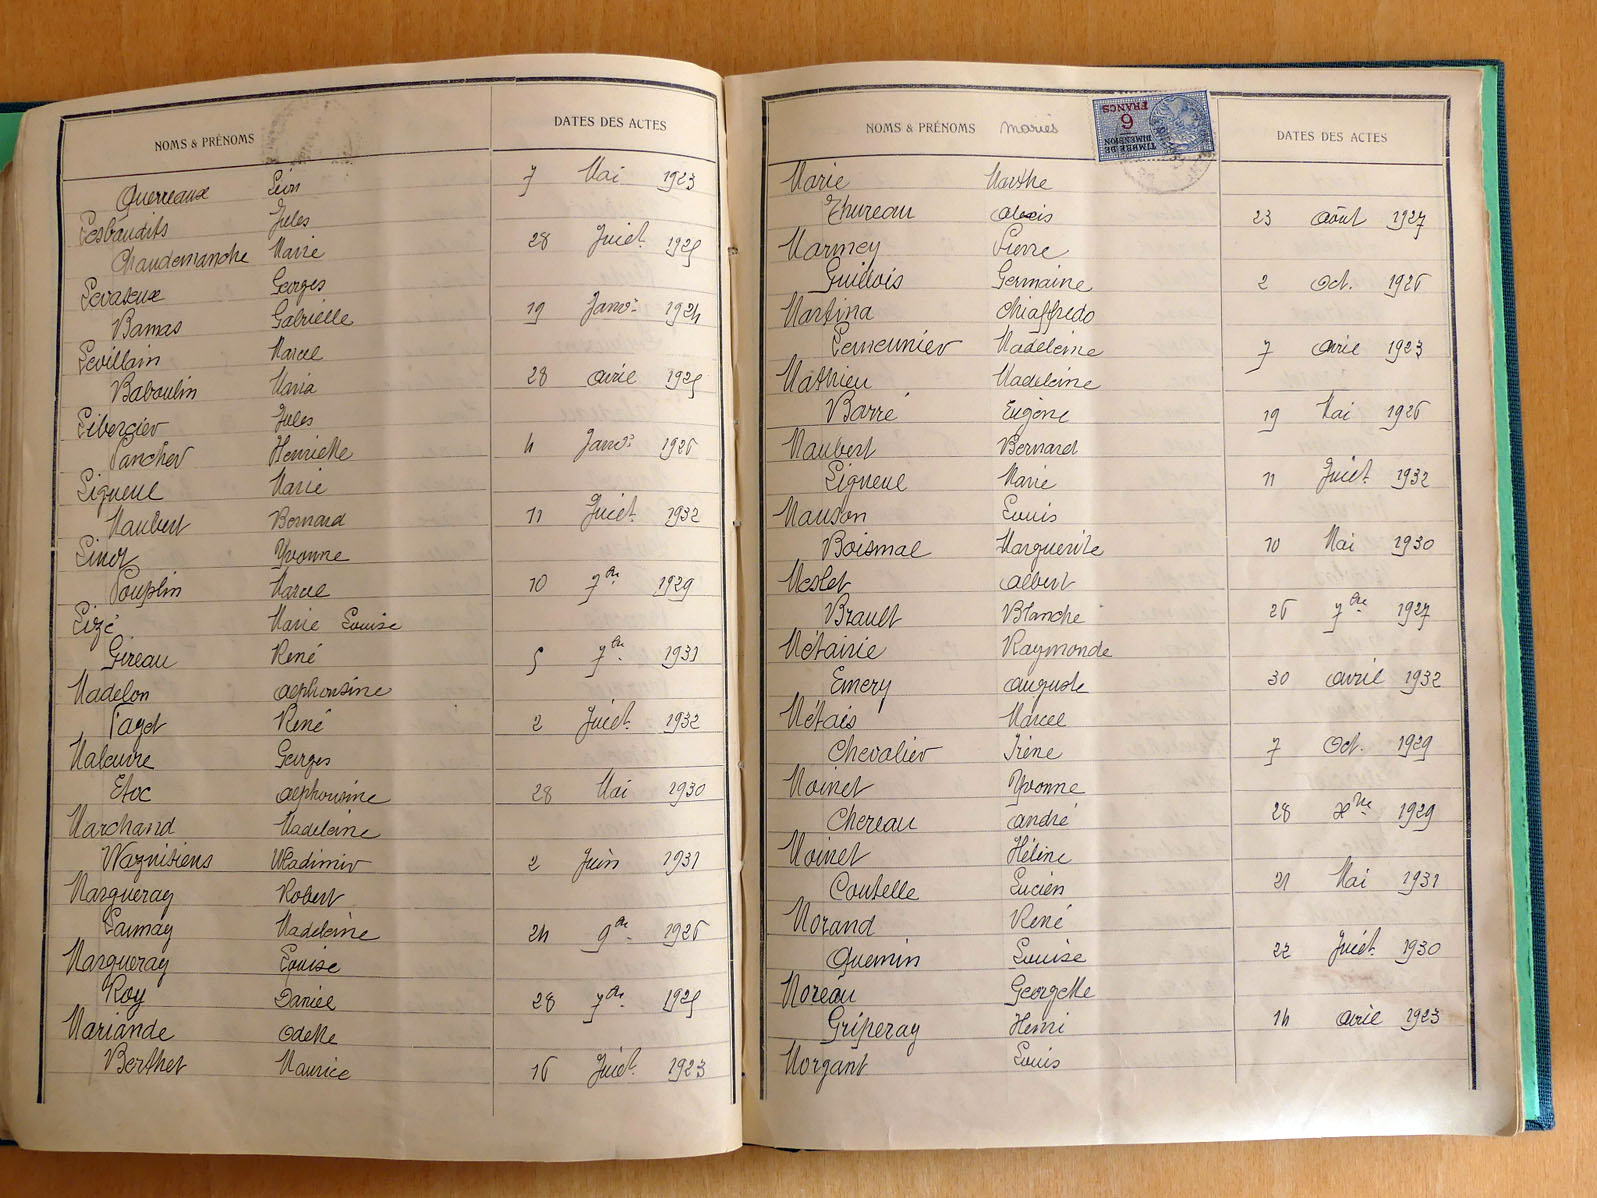 NOMS & PRÉNOMS DATES DES ACTES
Querreaux Léon 7 Mai 1923
Lesbaudits Jules
Chaudemanche Marie 28 Juiet. 1925
Levaseux Georges
Bamas Gabrielle 19 Janvr. 1924
Levillain Marcel
Baboulin Maria 28 avril 1925
Libergier Jules
Pancher Henriette 4 Janvr. 1926
Ligneul Marie
Maubert Bernard 11 Juiet. 1932
Linoz Yvonne
Pouplin Marcel 10 7bre 1929
Lizé Marie Louise
Gireau René 5 7bre 1931
Madelon alphonsine
Paget René 2 Juiet. 1932
Maleuvre Georges
Etoc alphonsine 28 Mai 1930
Marchand Madeleine
Waznisiens Wladimir 2 Juin 1931
Margueray Robert
Launay Madeleine 24 9bre 1926
Margueray Louise
Roy Daniel 28 7bre 1925
Mariande Odette
Berthet Maurice 16 Juiet. 1923
NOMS & PRÉNOMS mariés DATES DES ACTES
TIMBRE DE DIMENSION
6 FRANCS
Marie Marthe
Thureau alexis 23 août 1927
Marmey Pierre
Guillois Germaine 2 Oct. 1926
Martina Chiaffredo
Lemeunier Madeleine 7 avril 1923
Mathieu Madeleine
Barré Eugène 19 Mai 1926
Maubert Bernard
Ligneul Marie 11 Juiet. 1932
Mauson Louis
Boismal Marguerite 10 Mai 1930
Meslet albert
Brault Blanche 26 7bre 1927
Métairie Raymonde
Emery auguste 30 avril 1932
Métais Marcel
Chevalier Irène 7 Oct. 1929
Moinet Yvonne
Chereau andré 28 Xbre 1929
Moinet Hélène
Coutelle Lucien 21 Mai 1931
Morand René
Quemin Louise 22 Juiet. 1930
Moreau Georgette
Griperay Henri 14 avril 1923
Morgant Louis